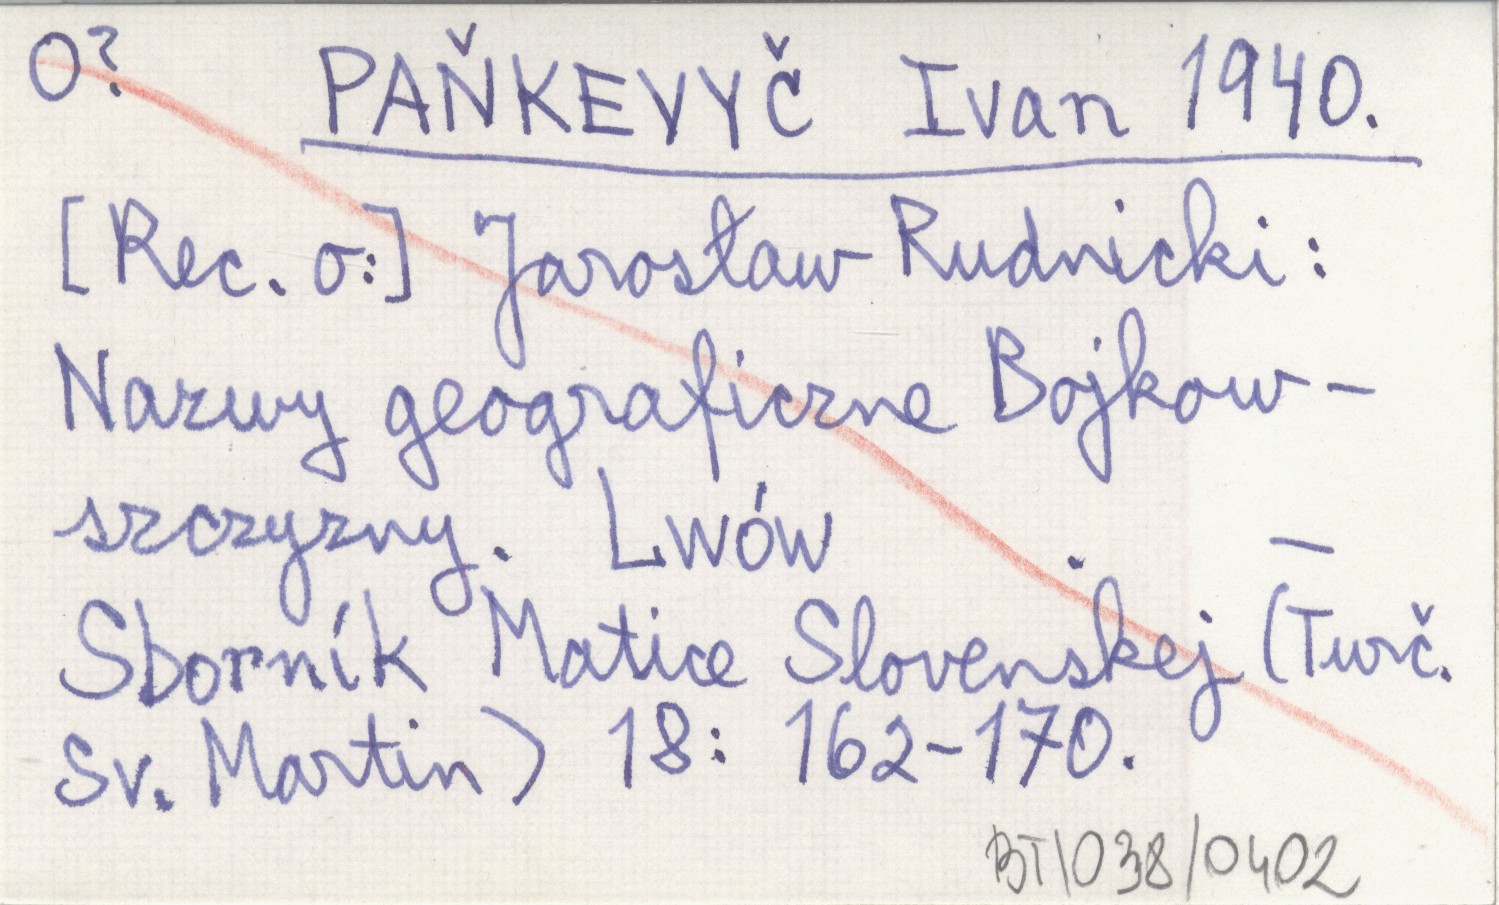 O? PAŇKEVYČ Ivan 1940.
[Rec. o:] Jarosław Rudnicki:
Nazwy geograficzne Bojkow-
szczyzny. Lwów . —
Sborník Matice Slovenskej (Turč.
Sv. Martin) 18: 162-170.
BT\038/0402